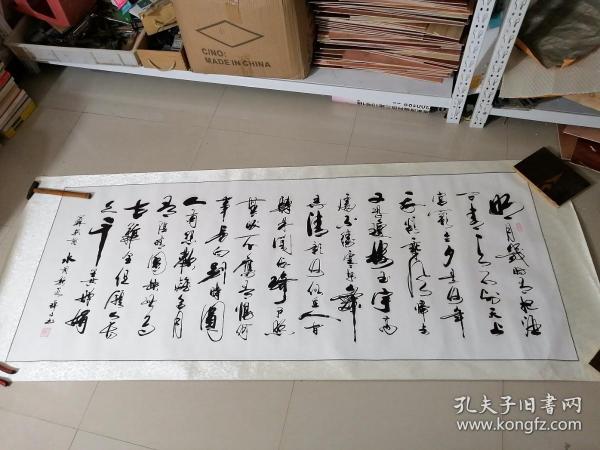 明月幾时有把酒
问青天不知天上
宫阙今夕是何年
我欲乘风归去
又恐琼楼玉宇高
处不胜寒起舞
弄清影何似在人间
转朱阁低绮户照
无眠不应有恨何
事长向别时圆
人有悲欢离合月
有阴晴圆缺此事
古难全但愿人长
久千里共婵娟
苏轼 水调歌头
CINO:
MADE IN CHINA
孔夫子旧书网
www.kongfz.com